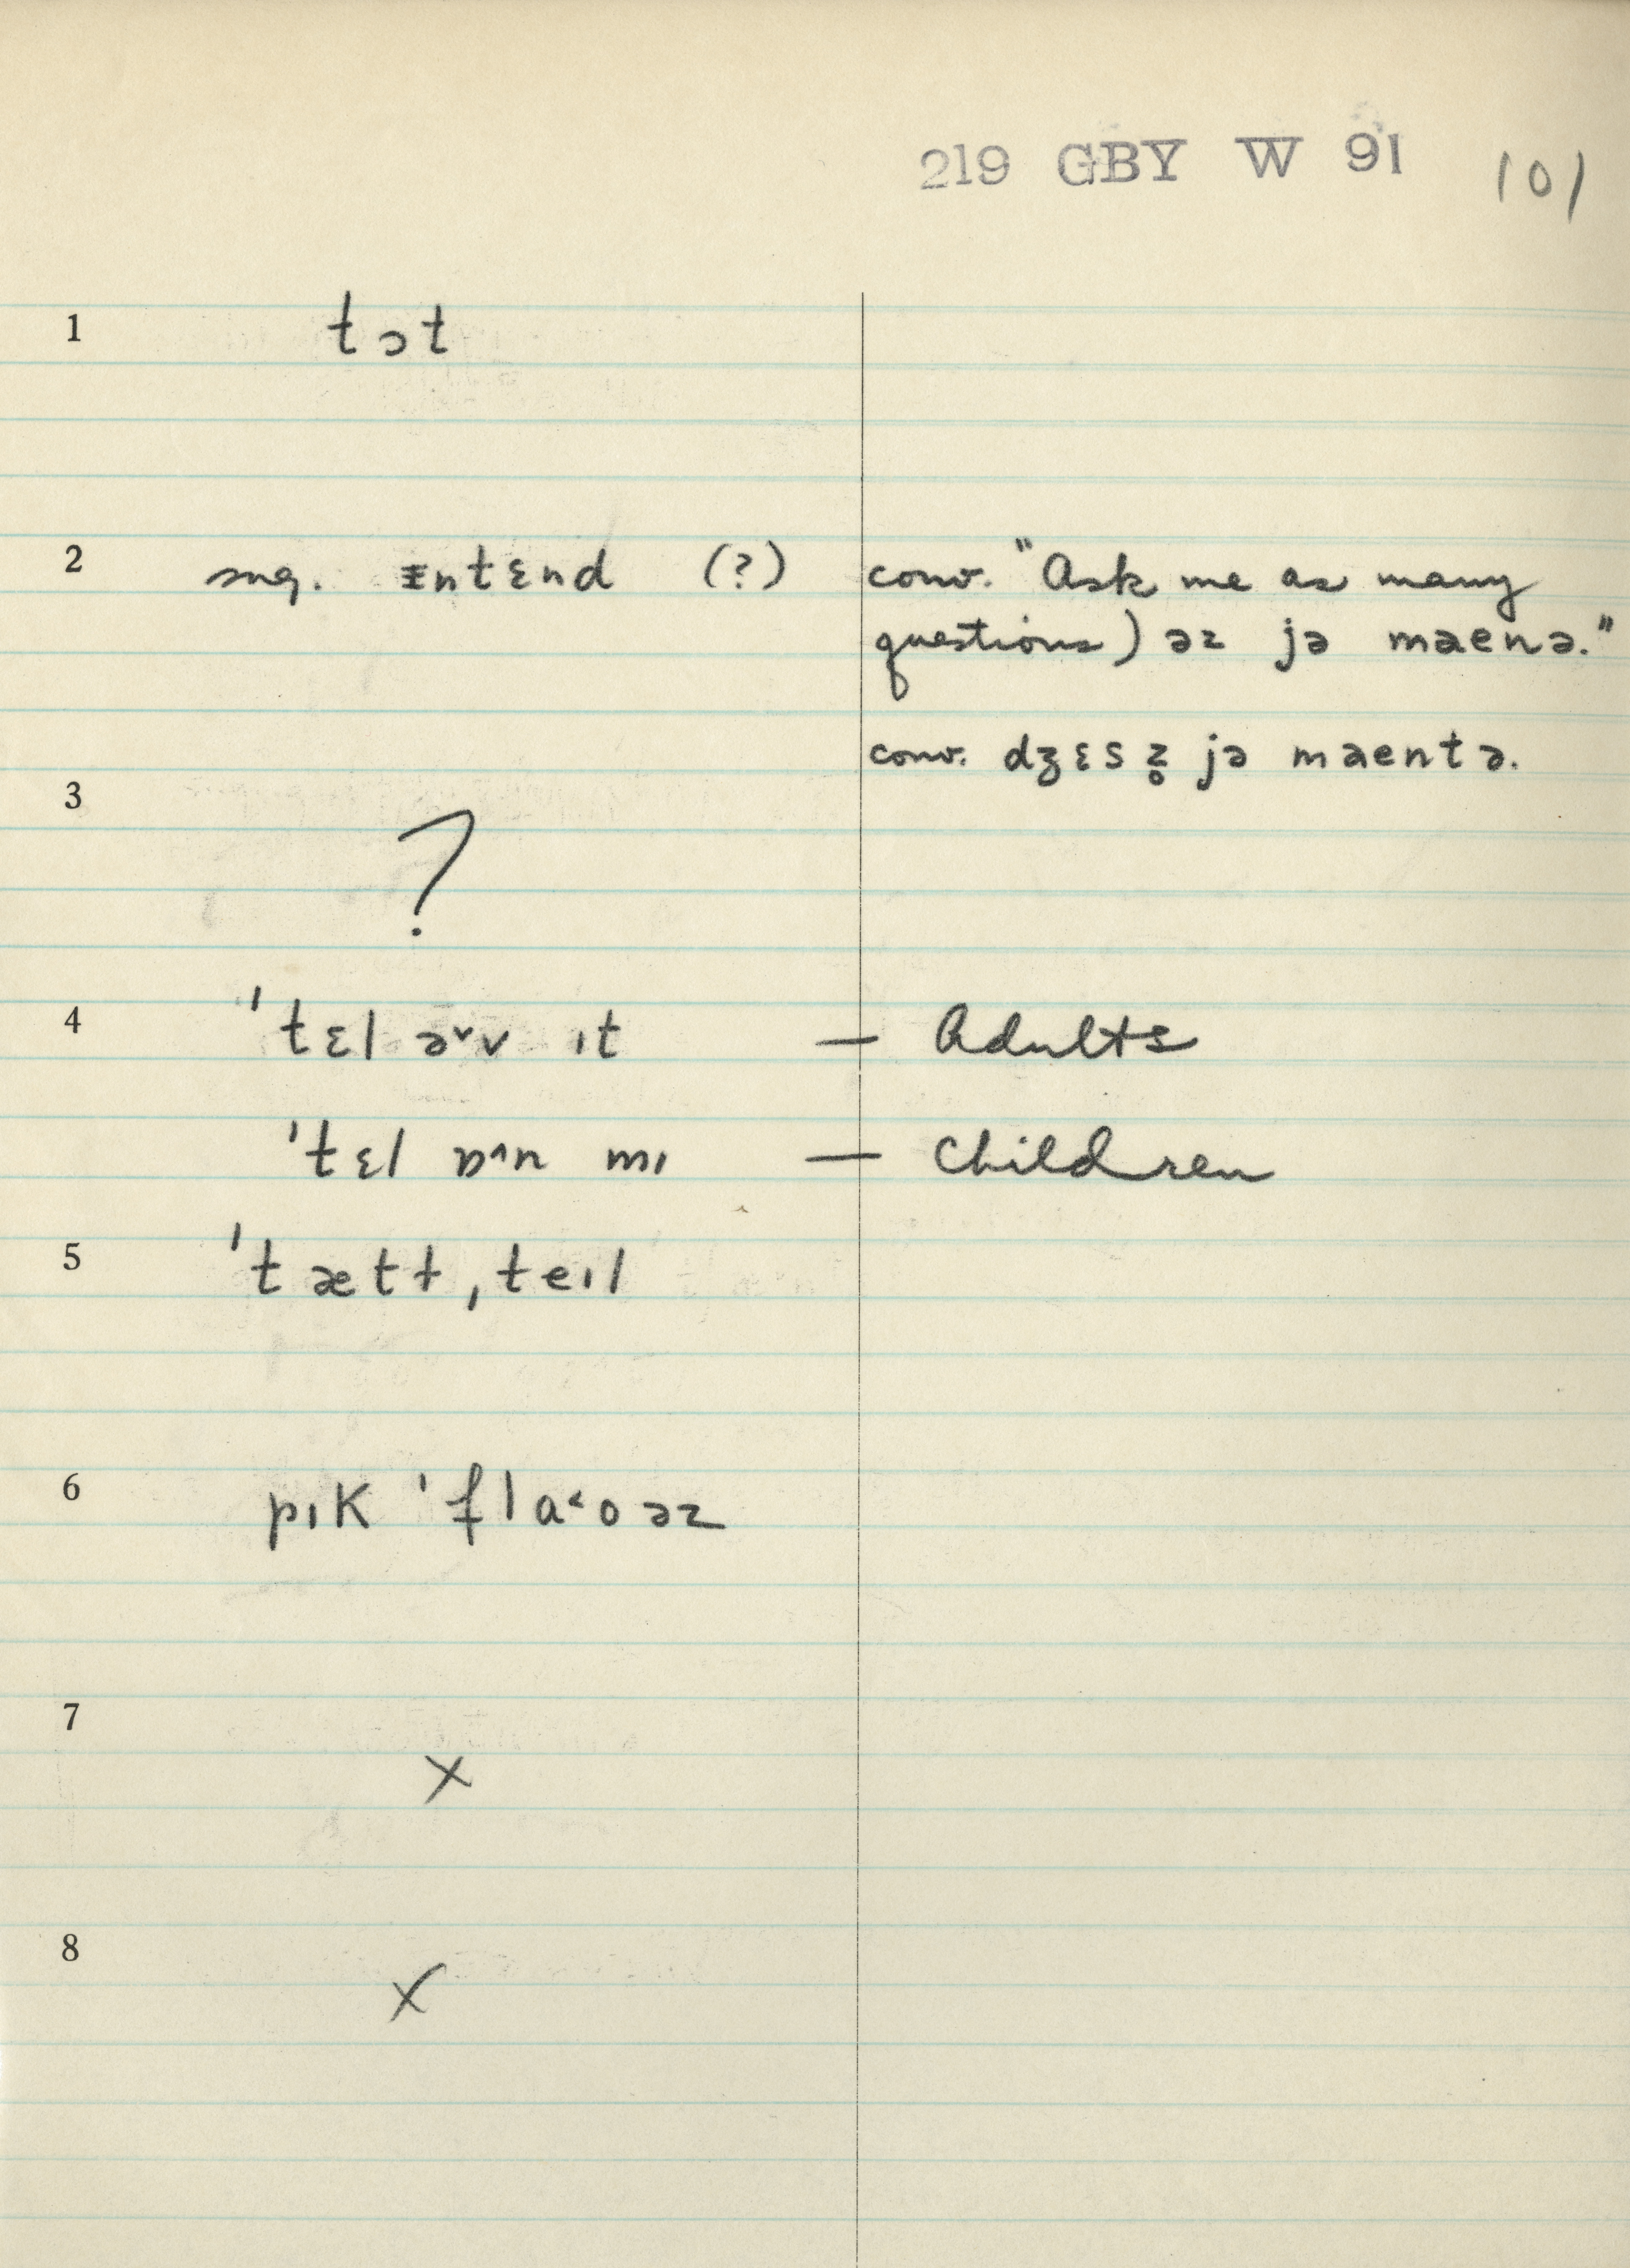 219 GBY W 91 101
1 tɔt
2 sug. ɪntɛnd (?) conv. "Ask me as many
questions) əz jə maenə."
conv. dʒɛs z̥ jə maentə.
3 ?
4 ˈtɛl ə˅v ɪt — Adults
ˈtɛl ɒ^n mɪ — Children
5 ˈtætɫˌteɪl
6 pɪk ˈflaʻʊəz
7 x
8 x